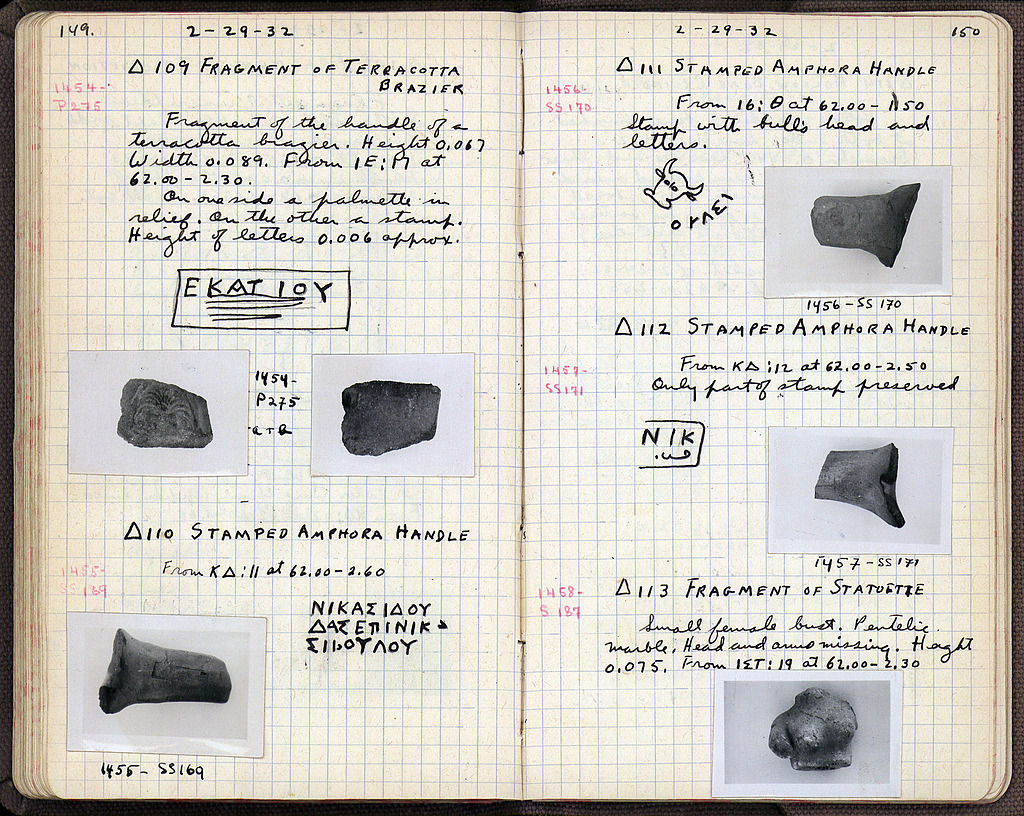 149.
2-29-32
Δ109 FRAGMENT OF TERRACOTTA
BRAZIER
1454-
P275
Fragment of the handle of a
terracotta brazier. Height 0.067
Width 0.089. From IE:Π at
62.00-2.30.
On one side a palmette in
relief. On the other a stamp.
Height of letters 0.006 approx.
ΕΚΑΤΙΟΥ
1454-
P275
a τ B
Δ110 STAMPED AMPHORA HANDLE
1455-
SS169
From ΚΔ:11 at 62.00-2.60
ΝΙΚΑΣΙΔΟΥ
ΕΠΙΝΙΚ
1455-SS169
2-29-32
150
Δ111 STAMPED AMPHORA HANDLE
1456-
SS170
From 16:Θ at 62.00-1.50
Stamp with bull's head and
letters.
1456-SS170
Δ112 STAMPED AMPHORA HANDLE
1457-
SS171
From ΚΔ:12 at 62.00-2.50
Only part of stamp preserved
ΝΙΚ
1457-SS171
Δ113 FRAGMENT OF STATUETTE
1458-
S187
Small female bust. Pentelic
marble. Head and arms missing. Height
0.075. From ΙΣΤ:19 at 62.00-2.30